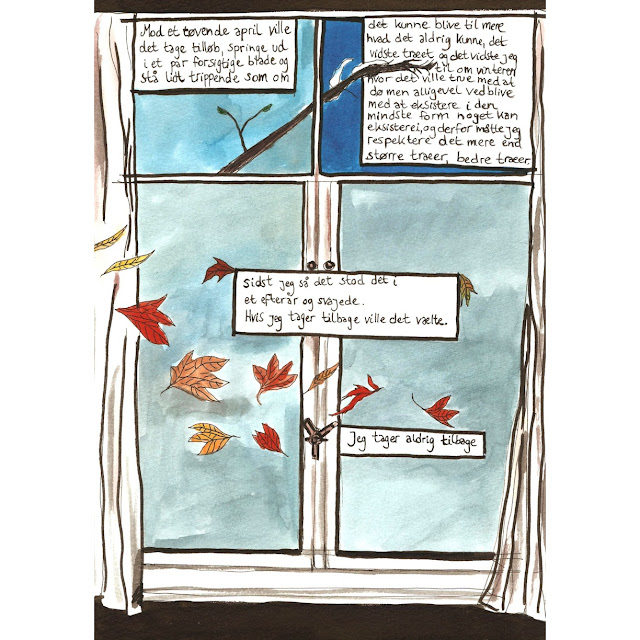 Mod et tøvende april ville
det tage tilløb, springe ud
i et par forsigtige blade og
stå lidt trippende som om
det kunne blive til mere
hvad det aldrig kunne, det
vidste træet og det vidste jeg
til om vinteren
hvor det ville true med at
dø men alligevel vedblive
med at eksistere i den
mindste form noget kan
eksistere i, og derfor måtte jeg
respektere det mere end
større træer, bedre træer.
Sidst jeg så det stod det i
et efterår og svajede.
Hvis jeg tager tilbage ville det vælte.
Jeg tager aldrig tilbage